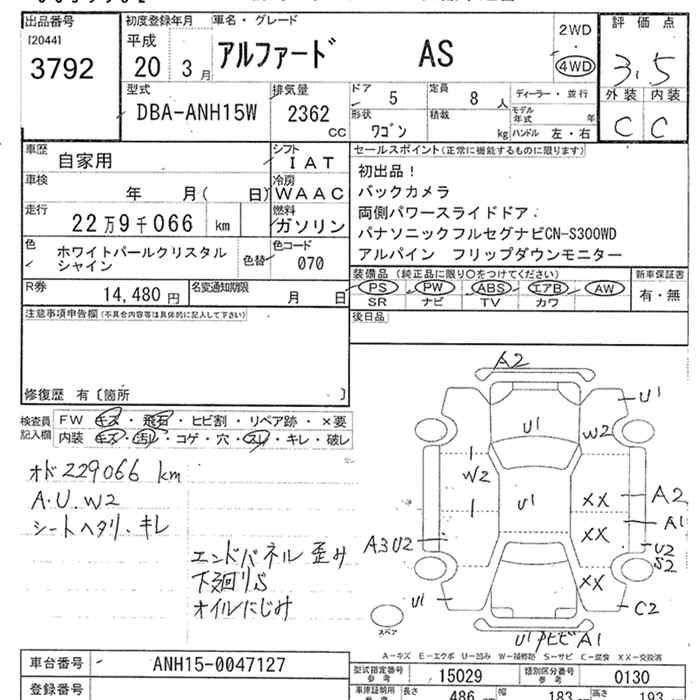 出品番号
[2044]
3792
初度登録年月
平成
20 3月
車名・グレード
アルファード AS
2WD
・
4WD
評価点
3.5
外装 内装
C C
型式
DBA-ANH15W
排気量
2362
CC
ドア
5
定員
8 人
ディーラー・並行
形状
ワゴン
積載
kg
モデル年式
年
ハンドル 左・右
車歴
自家用
シフト
IAT
車検
年 月( 日)
冷房
WAAC
走行
22万9千066 km
燃料
ガソリン
色
ホワイトパールクリスタル
シャイン
色替
色コード
070
R券
14,480 円
名変通知期限
月 日
セールスポイント(正常に機能するものに限ります)
初出品!
バックカメラ
両側パワースライドドア
パナソニックフルセグナビCN-S300WD
アルパイン フリップダウンモニター
装備品(純正品に限り○をつけてください)
PS PW ABS エアB AW
SR ナビ TV カワ
新車保証書
有・無
後日品
注意事項申告欄(不具合内容等は具体的に記入して下さい)
修復歴 有〔箇所 〕
検査員
記入欄
FW キズ・飛石・ヒビ割・リペア跡・×要
内装 キズ・汚レ・コゲ・穴・スレ・キレ・破レ
オド229066 km
A.U.W2
シートヘタリ、キレ
エンドパネル 歪み
下廻りS
オイルにじみ
A2
U1
U1
W2
W2
U1
XX
A2
XX
A1
A3 U2
U2
S2
XX
U1
C2
スペア
U1 アヒビA1
A-キズ E-エクボ U-凹み W-補修跡 S-サビ C-腐食 XX-交換済
車台番号
ANH15-0047127
登録番号
型式指定番号
参考
15029
類別区分番号
参考
0130
車庫証明用
参考
長さ
486 cm
幅
183 cm
高さ
193 cm